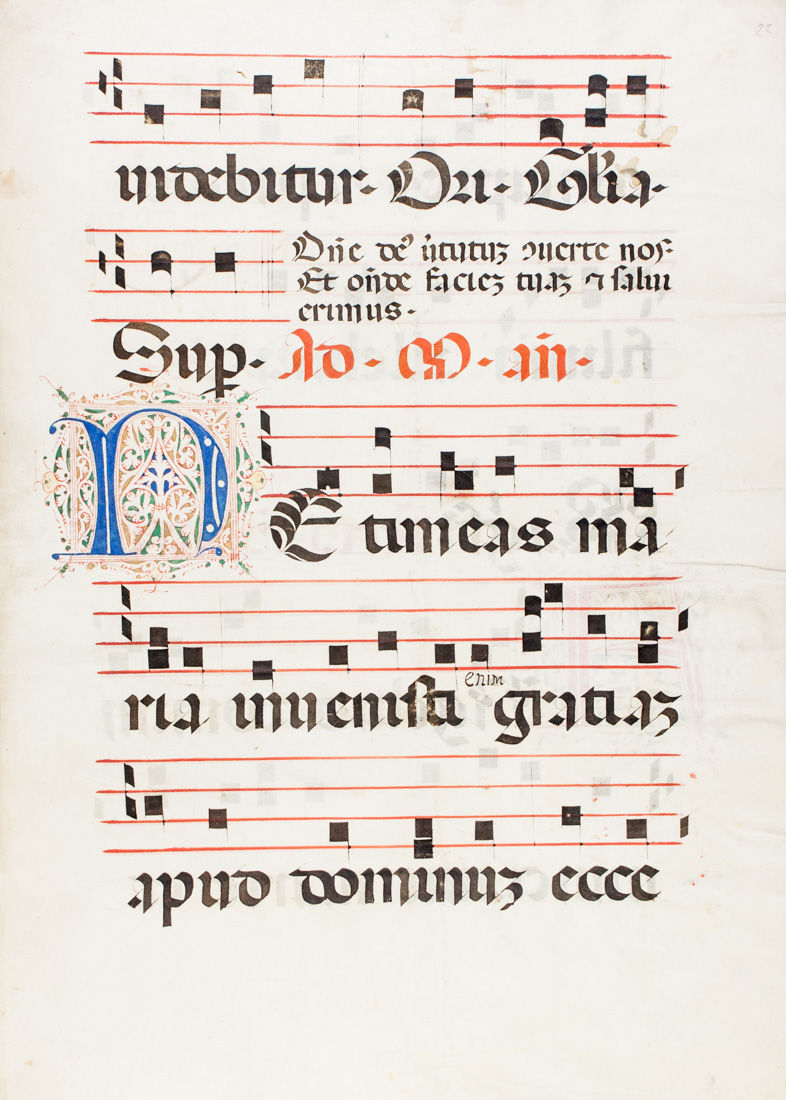 22
uidebitur. Ori. Glia.
Dñe de᷒ ỽtutuz ↄuerte nos.
Et oñde faciez tuaz ⁊ salui
erimus.
Sup. Ad. M. añ.
NE timeas ma
ria inuenisti enim gratiaz
apud dominuz ecce